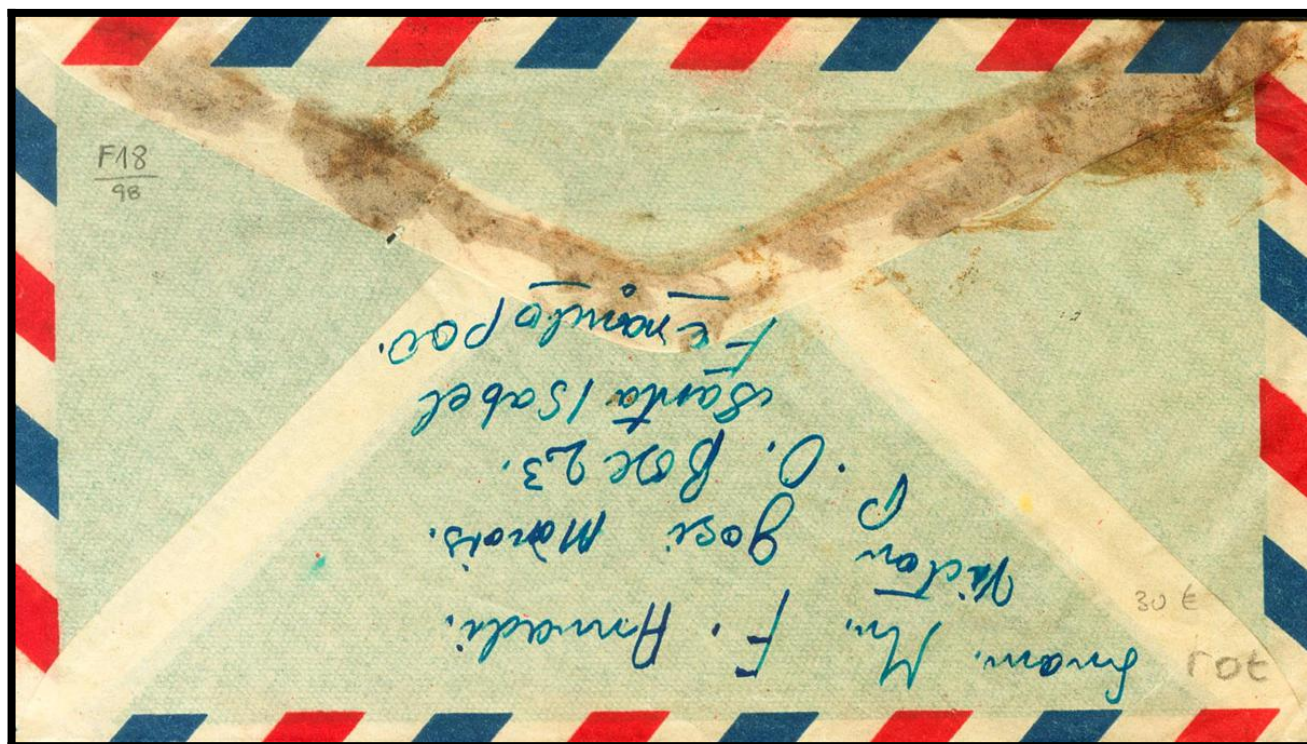 F18
98
From. Mr. F. Amadi.
Victor José
P. O. Box 23.
Santa Isabel
Fernando poo.
30 €
rot